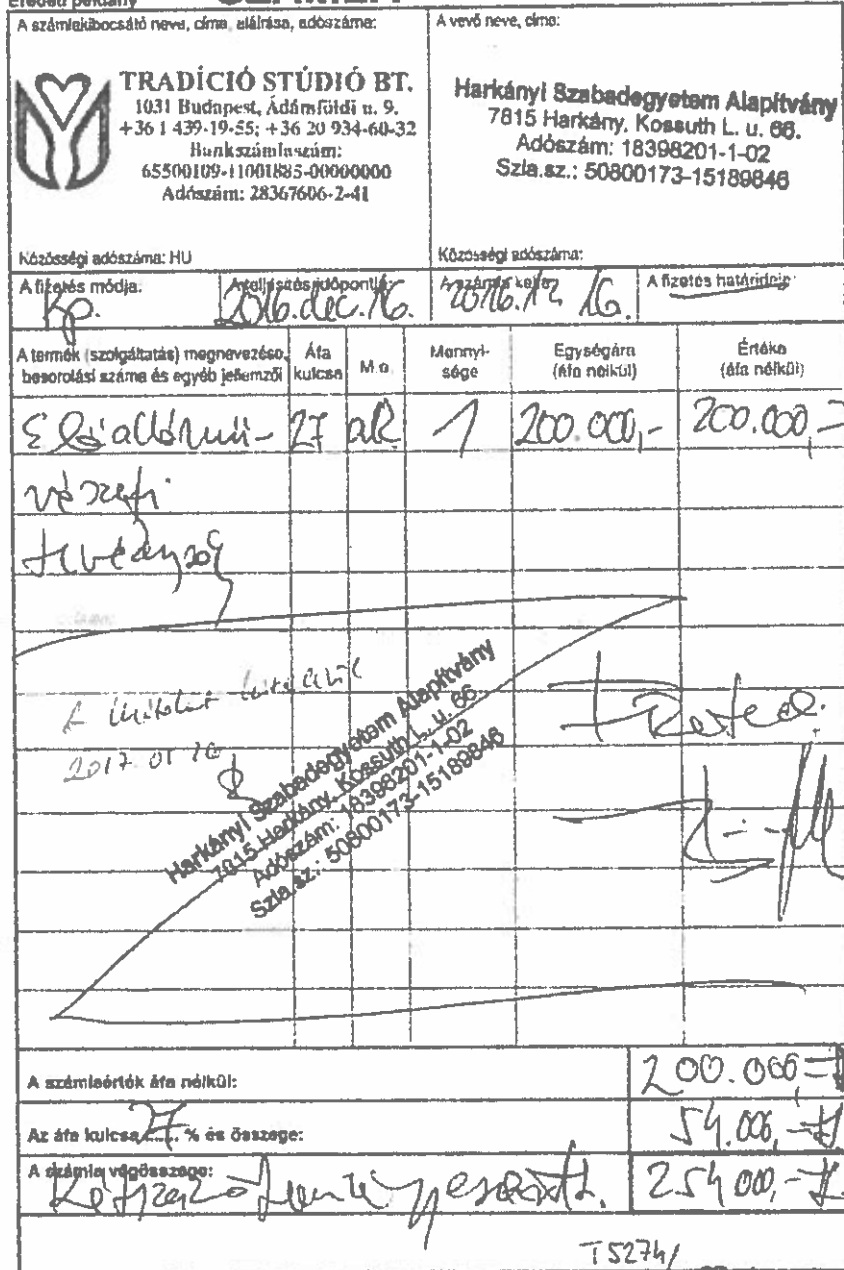 Eredeti példány
A számlakibocsátó neve, címe, aláírása, adószáma:
TRADÍCIÓ STÚDIÓ BT.
1031 Budapest, Ádámföldi u. 9.
+36 1 439-19-55; +36 20 934-60-32
Bankszámlaszám:
65500109-11001885-00000000
Adószám: 28367606-2-41
Közösségi adószáma: HU
A vevő neve, címe:
Harkányi Szabadegyetem Alapítvány
7815 Harkány, Kossuth L. u. 66.
Adószám: 18398201-1-02
Szla.sz.: 50800173-15189846
Közösségi adószáma:
A fizetés módja:
Kp.
A teljesítés időpontja:
2016. dec. 16.
A számla kelte:
2016. 12 16.
A fizetés határideje:
A termék (szolgáltatás) megnevezése, besorolási száma és egyéb jellemzői
Áfa kulcsa
M.e.
Mennyi-sége
Egységára (áfa nélkül)
Értéke (áfa nélkül)
Előadómű- 27 alk 1 200.000,- 200.000,-
vészeti
tevékenység
2017 01 10
Harkányi Szabadegyetem Alapítvány
7815 Harkány, Kossuth L. u. 66.
Adószám: 18398201-1-02
Szla.sz.: 50800173-15189846
A számlaérték áfa nélkül: 200.000,-
Az áfa kulcsa 27 % és összege: 54.000,-
A számla végösszege: 254 000,-
T5274/